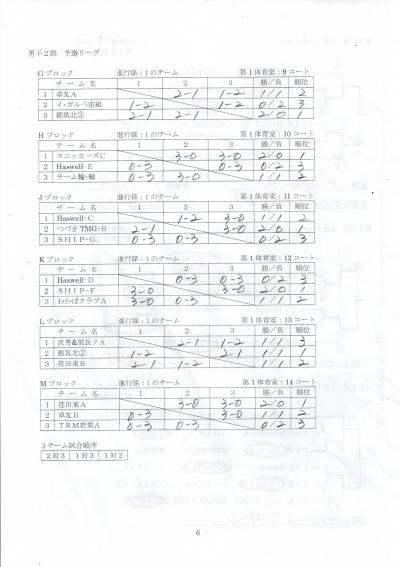 男子2部 予選リーグ
Gブロック 進行係：1のチーム 第1体育室：9コート
チーム名 1 2 3 勝／負 順位
1 卓友A 2-1 1-2 1/1 2
2 イ・ガルベ宙組 1-2 1-2 0/2 3
3 都筑北③ 2-1 2-1 2/0 1
Hブロック 進行係：1のチーム 第1体育室：10コート
チーム名 1 2 3 勝／負 順位
1 スニッカーズC 3-0 3-0 2/0 1
2 Haswell-E 0-3 0-3 0/2 3
3 チーム輪・輪 0-3 3-0 1/1 2
Jブロック 進行係：1のチーム 第1体育室：11コート
チーム名 1 2 3 勝／負 順位
1 Haswell-C 1-2 3-0 1/1 2
2 つづきTMG-B 2-1 3-0 2/0 1
3 SHIP-G 0-3 0-3 0/2 3
Kブロック 進行係：1のチーム 第1体育室：12コート
チーム名 1 2 3 勝／負 順位
1 Haswell-D 0-3 0-3 0/2 3
2 SHIP-F 3-0 3-0 2/0 1
3 わかばクラブA 3-0 0-3 1/1 2
Lブロック 進行係：1のチーム 第1体育室：13コート
チーム名 1 2 3 勝／負 順位
1 次男&部長クA 2-1 1-2 1/1 3
2 都筑北② 1-2 2-1 1/1 1
3 荏田東B 2-1 1-2 1/1 2
Mブロック 進行係：1のチーム 第1体育室：14コート
チーム名 1 2 3 勝／負 順位
1 荏田東A 3-0 3-0 2/0 1
2 卓友B 0-3 3-0 1/1 2
3 TRM若葉A 0-3 0-3 0/2 3
3チーム試合順序
2対3 1対3 1対2
6